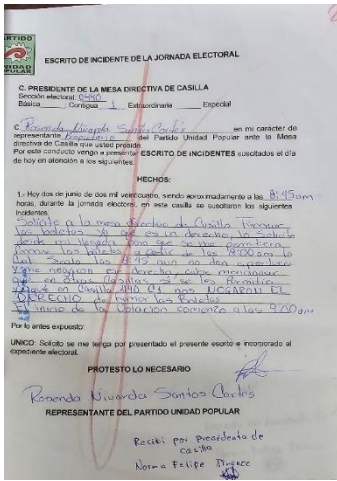 PARTIDO
UNIDAD
POPULAR
ESCRITO DE INCIDENTE DE LA JORNADA ELECTORAL
C. PRESIDENTE DE LA MESA DIRECTIVA DE CASILLA
Sección electoral: 0440
Básica ______; Contigua 1 Extraordinaria ______ Especial
C. Rosenda Nivarda Santos Cortés en mi carácter de
representante Propietario del Partido Unidad Popular ante la Mesa
directiva de Casilla que usted preside.
Por este conducto vengo a presentar ESCRITO DE INCIDENTES suscitados el día
de hoy en atención a los siguientes:
HECHOS:
1.- Hoy dos de junio de dos mil veinticuatro, siendo aproximadamente a las 8:45am
horas, durante la jornada electoral, en esta casilla se suscitaron los siguientes
incidentes:
Solicite a la mesa directiva de Casilla Firmar
las boletas ya que es un derecho, lo Solicite
desde mi llegada para que se me permitiera
firmar las boletas a partir de las 8:00am
8:45 aun no dan apertura
y me negaron ese derecho, cabe mencionar
que en otras Casillas si se les Permitio
y aqui en Casilla 440 C1 nos NEGARON EL
DERECHO de firmar las Boletas
El inicio de la Votacion comenzo a las 9:00am
Por lo antes expuesto:
UNICO: Solicito se me tenga por presentado el presente escrito e incorporado al
expediente electoral.
PROTESTO LO NECESARIO
Rosenda Nivarda Santos Cortés
REPRESENTANTE DEL PARTIDO UNIDAD POPULAR
Recibi por Presidenta de
casilla
Norma Felipe